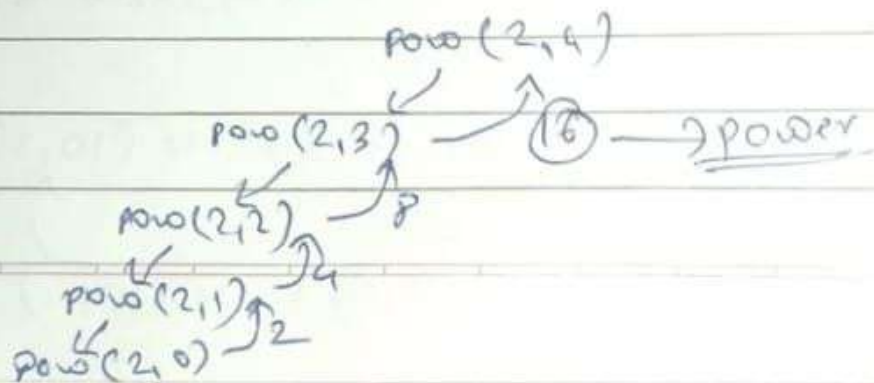 pow (2,4)
pow (2,3) 16 → power
pow (2,2) 8
pow (2,1) 4
pow (2,0) 2